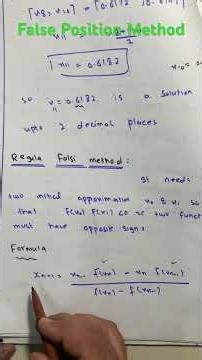 [v8, v10] = [0.6172 0.6
False Position Method
v11
2
v11 = 0.6182
v10 = 0.
so v11 = 0.6182 is a solution
upto 2 decimal places
Regula Falsi method:
It needs
two initial approximation v0 & v1 so
that f(v0) f(v1) <0 ie two funct
must have opposite signs
Formula
xn+1 = vn-1 f(vn) - vn f(vn-1)
f(vn) - f(vn-1)